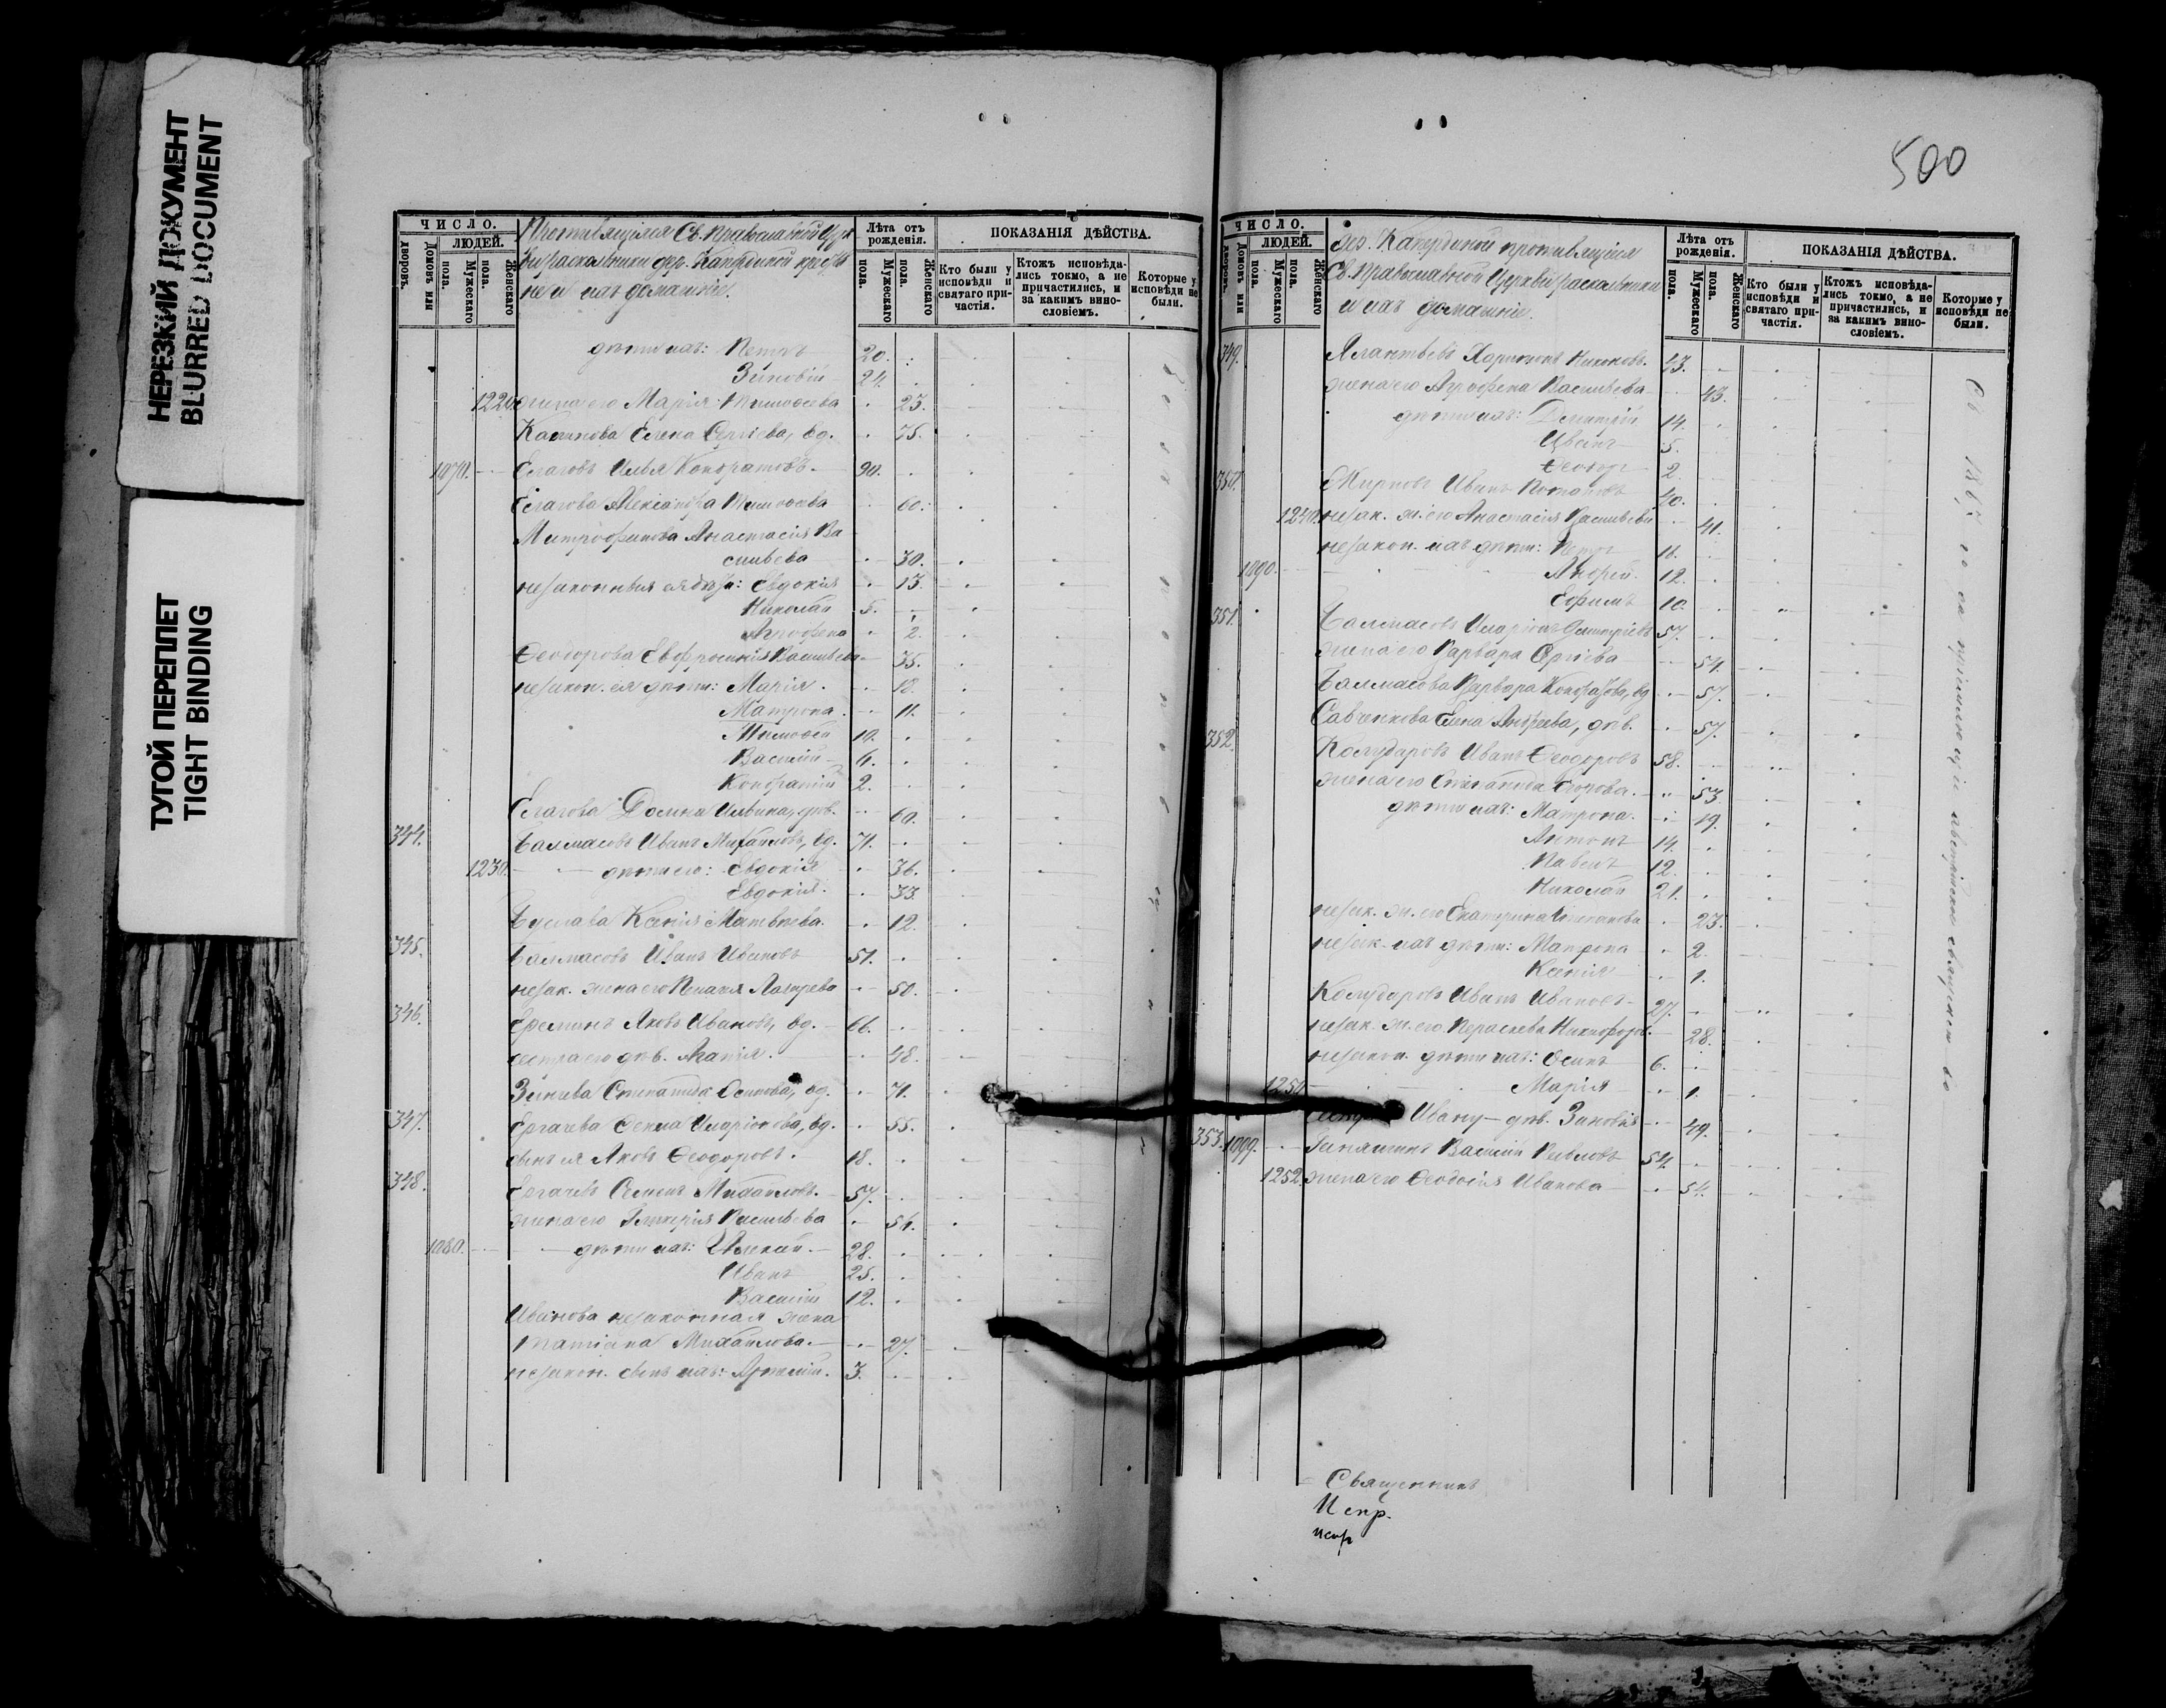 НЕРЕЗКИЙ ДОКУМЕНТ
BLURRED DOCUMENT
ТУГОЙ ПЕРЕПЛЕТ
TIGHT BINDING
ЧИСЛО.
ЛЮДЕЙ.
дворовъ.
Домовъ или
Мужескаго пола.
Женскаго пола.
Противящіеся Св. Православной Церк
ви раскольники дер.
не и ихъ домашніе.
Лѣта отъ рожденія.
Мужескаго пола.
Женскаго пола.
ПОКАЗАНІЯ ДѢЙСТВА.
Кто были у исповѣди и святаго при-частія.
Ктожъ исповѣда-лись токмо, а не причастились, и за какимъ вино-словіемъ.
Которые у исповѣди не были.
дѣти ихъ: Петръ 20.
Зиновій 24.
1224 жена его Марія Тимоѳеева 23.
Елена Сергіева, вд. 75.
1070. Елаговъ Илья Кондратовъ. 90.
Елагова Александра Тимоѳеева 60.
Митрофанова Анастасія Ва
сильева 30.
незаконныя ея дѣти: Евдокія 13.
Николай 5.
Агрофена 2.
Ѳеодорова Евфросинія Васильева 35.
незакон. ея дѣти: Марія. 18.
Матрона. 11.
Тимоѳей 10.
Василій 6.
Кондратій 2.
Елагова Домна Ильина, дѣв. 60.
344. Балмасовъ Иванъ Михайловъ, вд. 71.
1230. дѣти его: Евдокія 36.
Евдокія. 33.
Ксенія Матвѣева. 12.
345. Балмасовъ Иванъ Ивановъ 51.
незак. жена его Пелагея Лазарева 50.
346. Ереминъ Яковъ Ивановъ, вд. 66.
сестра его дѣв. Агапія. 48.
Степанида Осипова, вд. 71.
347. Ергачева Ѳекла Иларіонова, вд. 55.
сынъ ея Яковъ Ѳеодоровъ. 18.
348. Ергачевъ Семенъ Михайловъ. 57.
жена его Гликерія Васильева 54.
1080. дѣти ихъ: Алексѣй. 28.
Иванъ 25.
Василій 12.
Иванова незаконная жена
Татіана Михайлова. 27.
незакон. сынъ ихъ: Артемій. 3.
500
ЧИСЛО.
ЛЮДЕЙ.
дворовъ.
Домовъ или
Мужескаго пола.
Женскаго пола.
дер. противящіеся
Св. Православной Церкви раскольники
и ихъ домашніе.
Лѣта отъ рожденія.
Мужескаго пола.
Женскаго пола.
ПОКАЗАНІЯ ДѢЙСТВА.
Кто были у исповѣди и святаго при-частія.
Ктожъ исповѣда-лись токмо, а не причастились, и за какимъ вино-словіемъ.
Которые у исповѣди не были.
349. Харитонъ Никоновъ. 43.
жена его Агрофена Васильева 43.
дѣти ихъ: Димитрій 14.
Иванъ 5.
Ѳеодоръ 2.
350. Жирновъ Иванъ Потаповъ 40.
1240. незак. ж. его Анастасія Васильева 41.
незакон. ихъ дѣти: Петръ 16.
1090. Андрей. 12.
Ефимъ 10.
351. Балмасовъ Иларіонъ Димитріевъ 57.
жена его Варвара Сергіева 54.
Балмасова Варвара Кондратова, вд 57.
Савченкова Елена Андреева, дѣв. 57.
352. Колударовъ Иванъ Ѳеодоровъ 58.
жена его Степанида Егорова. 53.
дѣти ихъ: Матрона. 19.
Антонъ 14.
Павелъ 12.
Николай 21.
незак. ж. его Екатерина Степанова 23.
незак. ихъ дѣти: Матрона 2.
Ксенія 1.
Колударовъ Иванъ Ивановъ 27.
незак. ж. его Параскева Никифоров. 28.
незакон. дѣти ихъ: Осипъ 6.
1250. Марія 1.
Ивану дѣв. Зиновія 49.
353. 1099. Василій Павловъ 54.
1252. жена его Ѳеодосія Иванова 54.
Священникъ
Испр.
испр